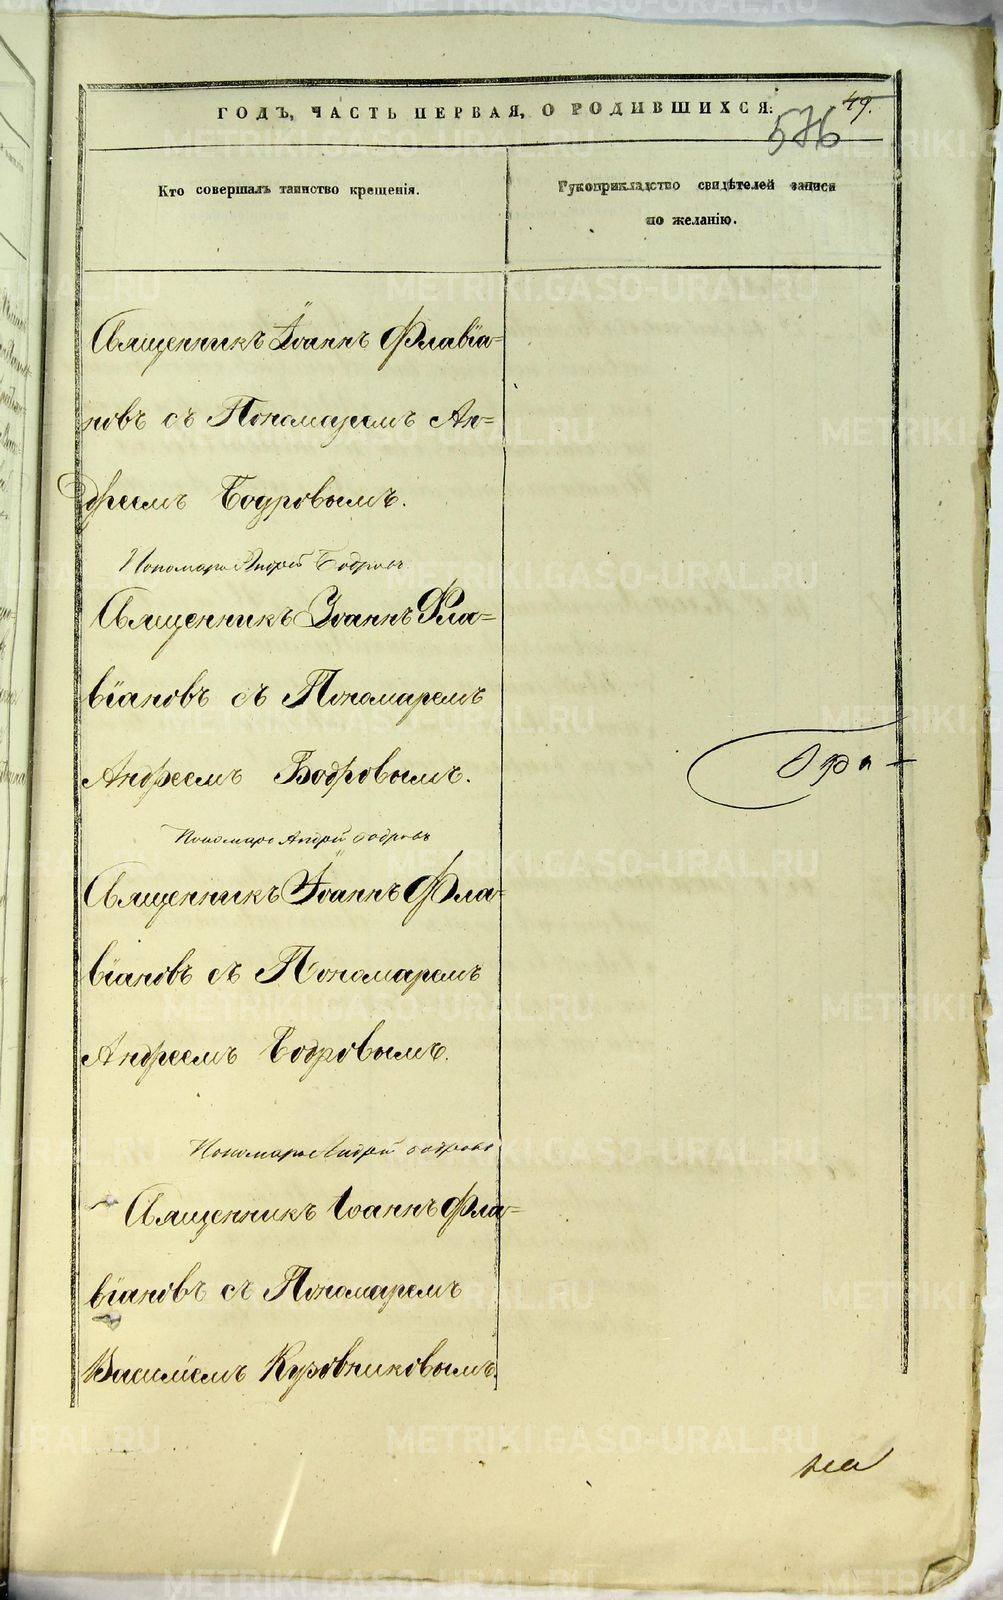 49.
ГОДЪ, ЧАСТЬ ПЕРВАЯ, О РОДИВШИХСЯ:
576
Кто совершалъ таинство крещенія.
Рукоприкладство свидѣтелей записи
по желанію.
Священникъ Іоаннъ Флавіа=
новъ съ Пономаремъ Ан=
дреемъ Бодровымъ.
Пономарь Андрей Бодровъ
Священникъ Іоаннъ Фла=
віановъ съ Пономаремъ
Андреемъ Бодровымъ.
Пономарь Андрей Бодровъ
Священникъ Іоаннъ Фла=
віановъ съ Пономаремъ
Андреемъ Бодровымъ.
Пономарь Андрей Бодровъ
Священникъ Іоаннъ Фла=
віановъ съ Пономаремъ
Василіемъ Куровниковымъ.
METRIKI.GASO-URAL.RU